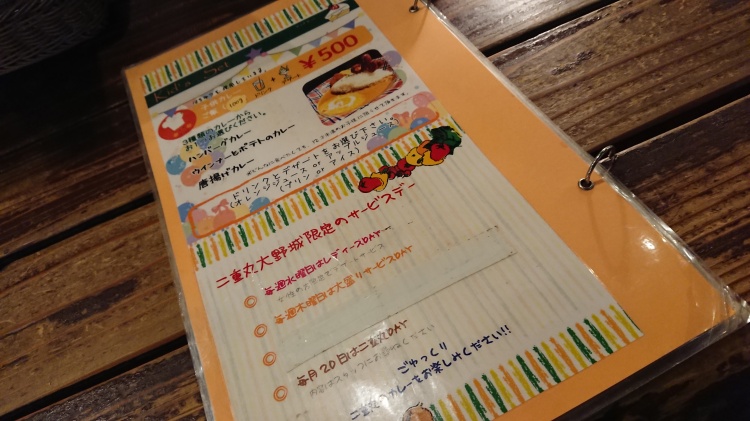 Kid's Set
¥500
3種類のカレーから
お選びください。
ハンバーグカレー
ウインナーとポテトのカレー
唐揚げカレー
ドリンクとデザートをお選び下さい。
(オレンジジュース or アップルジュース)
(プリン or アイス)
二重丸大野城限定のサービスデー
◎ 毎週水曜日はレディースDAY
◎ 毎週木曜日は大盛りサービスDAY
◎
◎ 毎月20日は二重丸DAY
内容はスタッフにお尋ねください
ごゆっくり
二重丸のカレーをお楽しみください!!